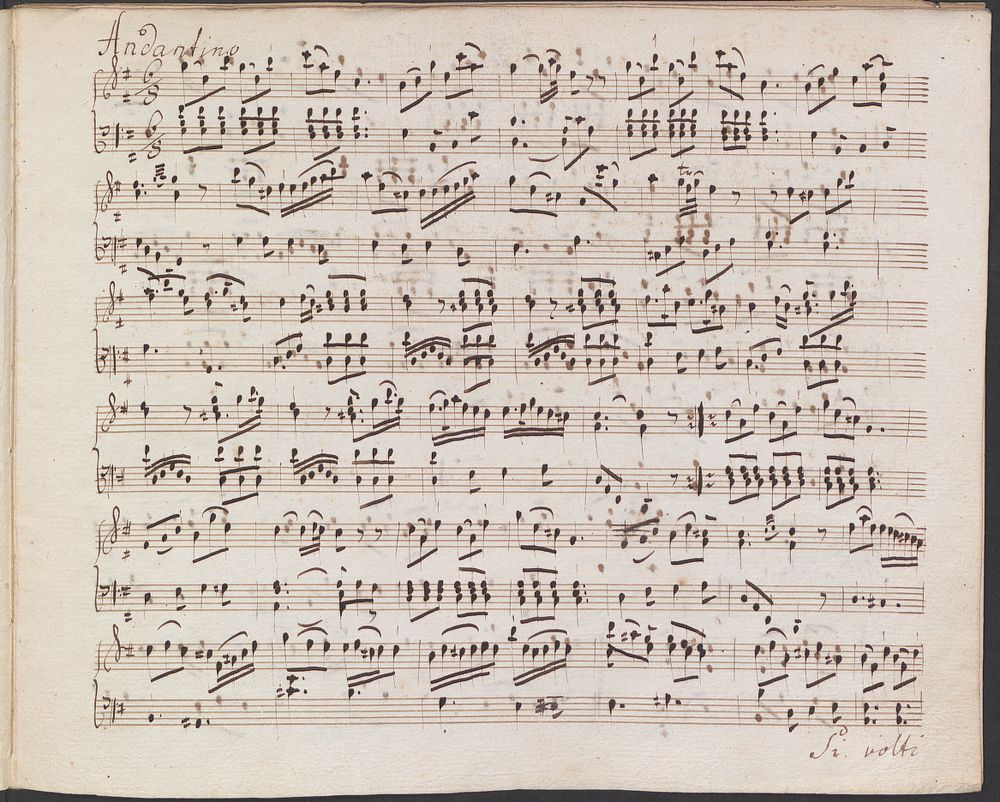 Andantino
6
8
6
8
tr
Si volti